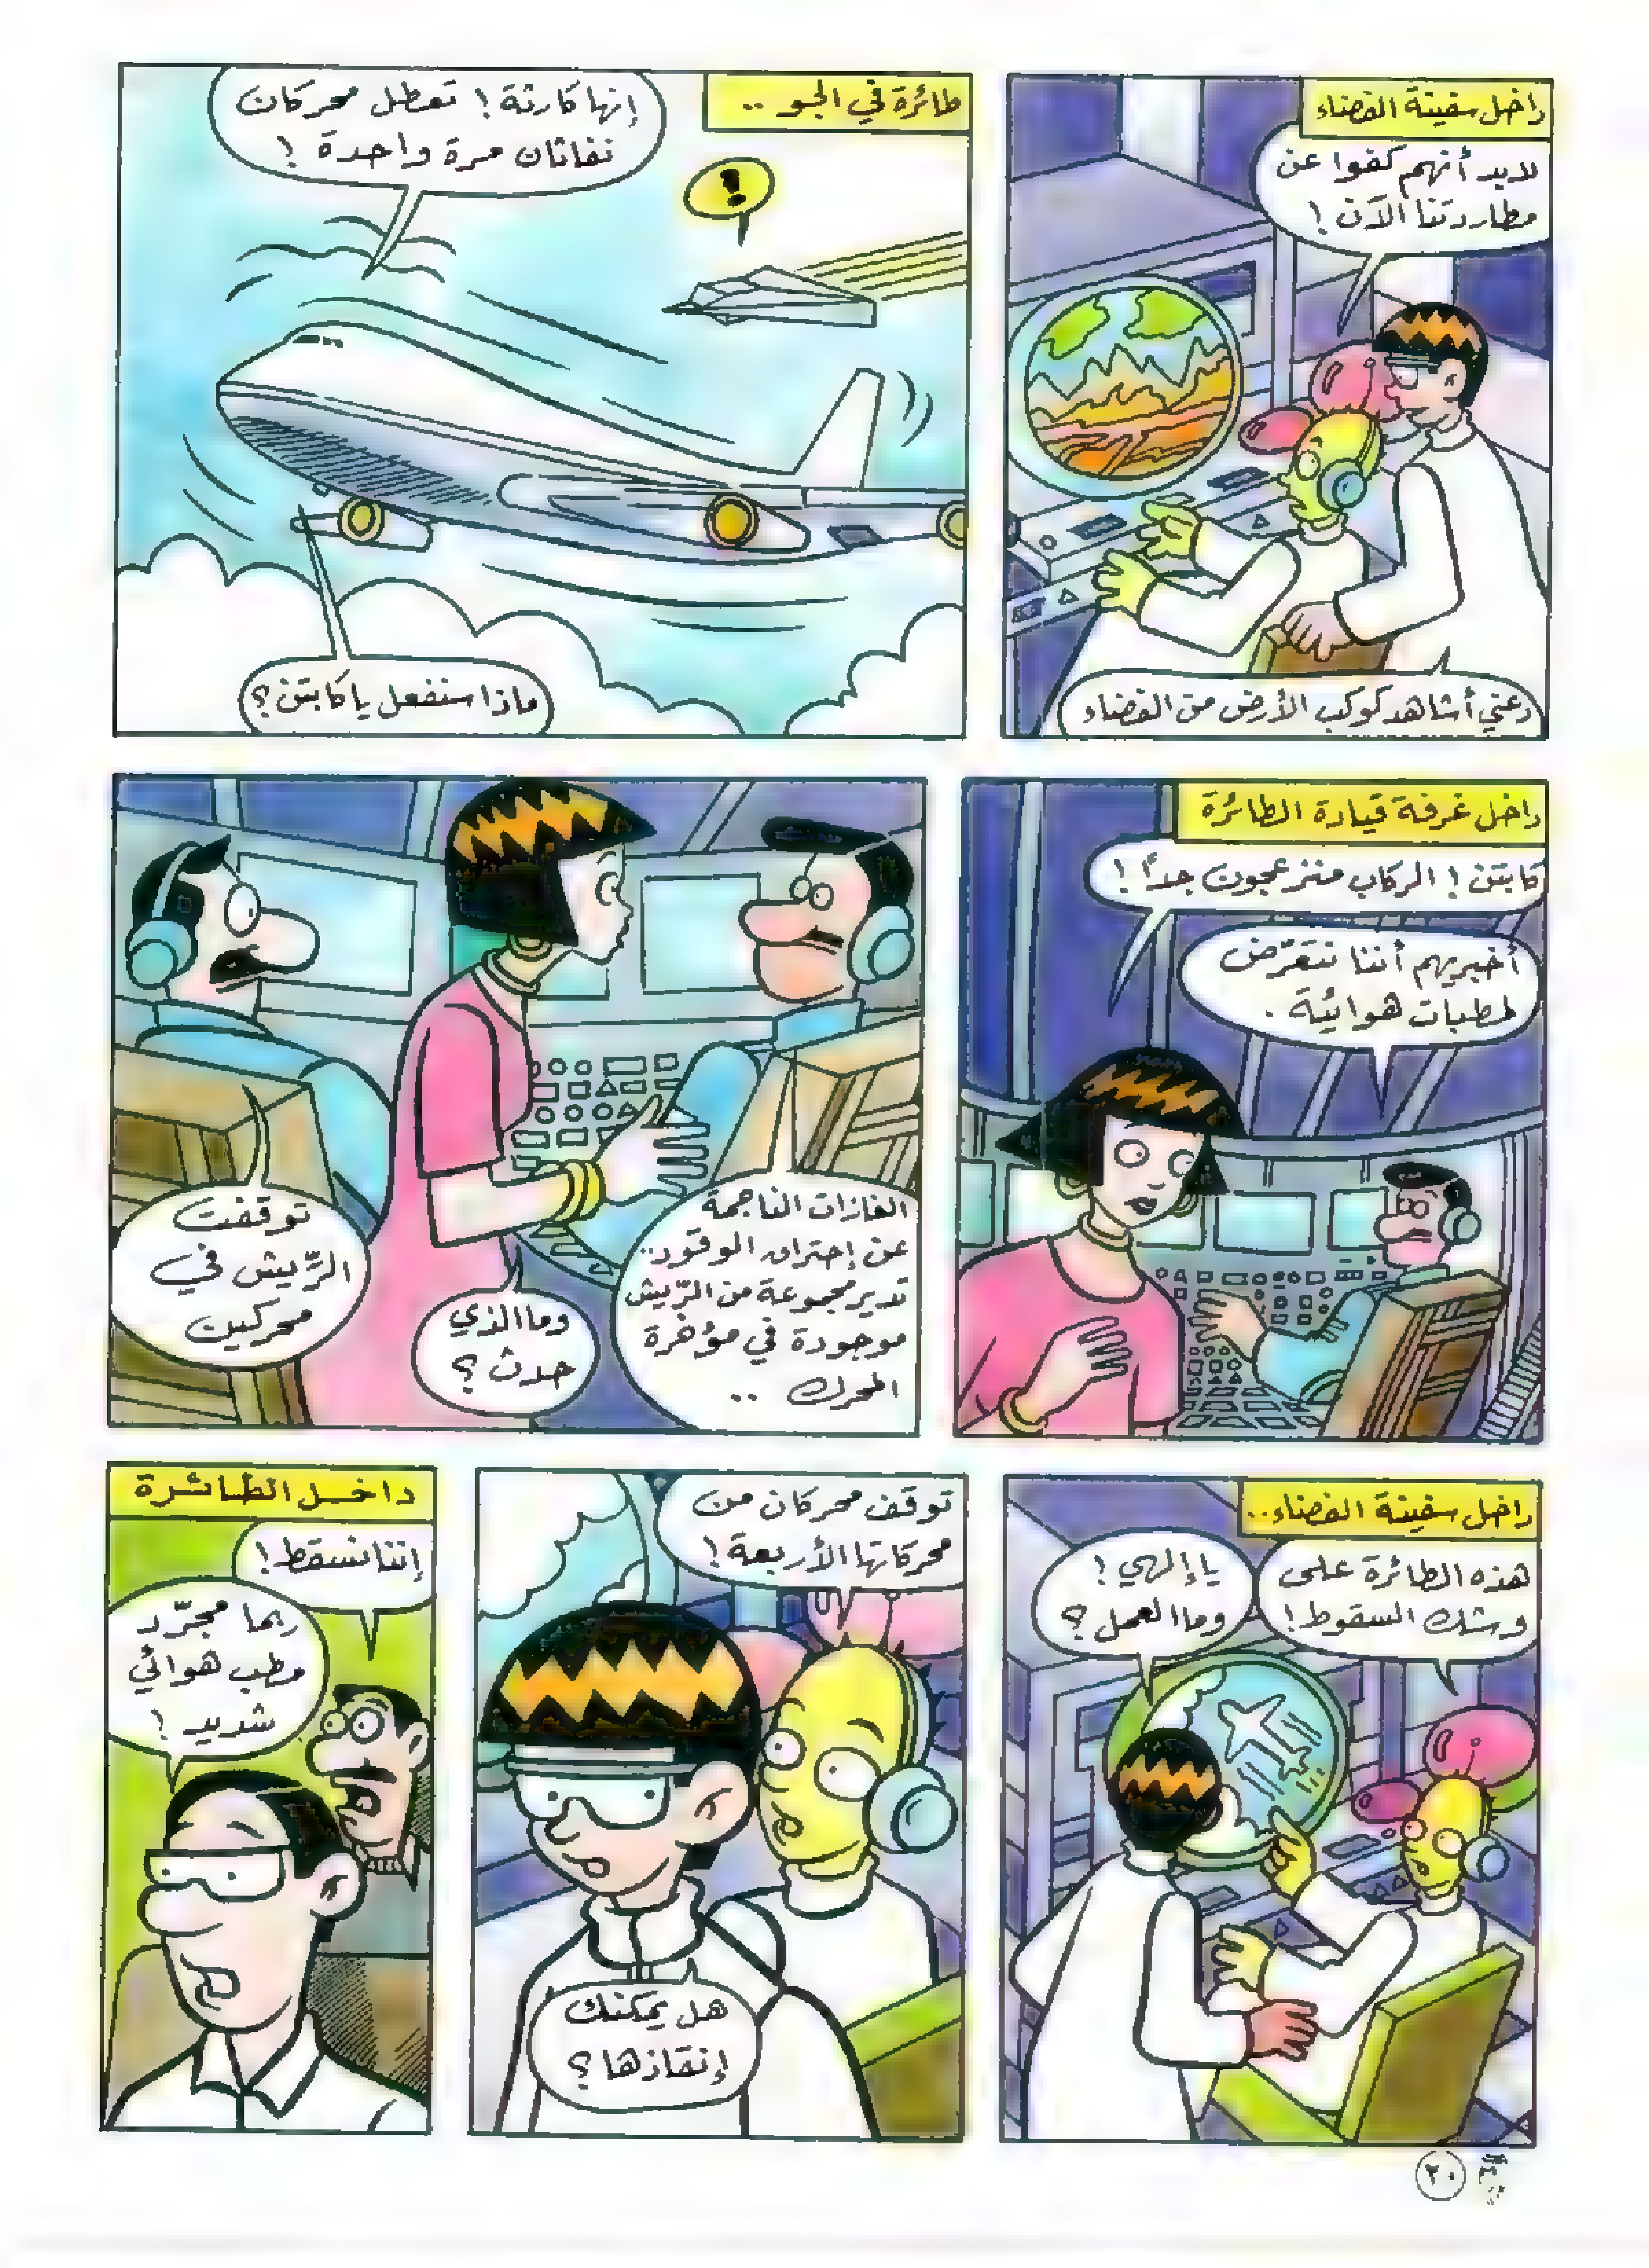 داخل سفينة الفضاء
لابد أنهم كفوا عن
مطاردتنا الآن !
دعني أشاهد كوكب الأرض من الفضاء
طائرة في الجو ..
!
إنها كارثة ! تعطل محركان
نفاثان مرة واحدة !
ماذا سنفعل يا كابتن ؟
داخل غرفة قيادة الطائرة
كابتن ! الركاب منزعجون جداً !
أخبريهم أننا نتعرّض
لمطبات هوائية .
الغازات الناجمة
عن إحتراق الوقود ..
تدير مجموعة من الرّيش
موجودة في مؤخرة
المحرك ..
وما الذي
حدث ؟
توقفت
الرّيش في
محركين
داخل سفينة الفضاء ..
هذه الطائرة على
وشك السقوط !
يا إلهي !
وما العمل ؟
توقف محركان من
محركاتها الأربعة !
هل يمكنك
إنقاذها ؟
داخل الطائرة
إننا نسقط !
ربما مجرّد
مطب هوائي
شديد !
٢٠